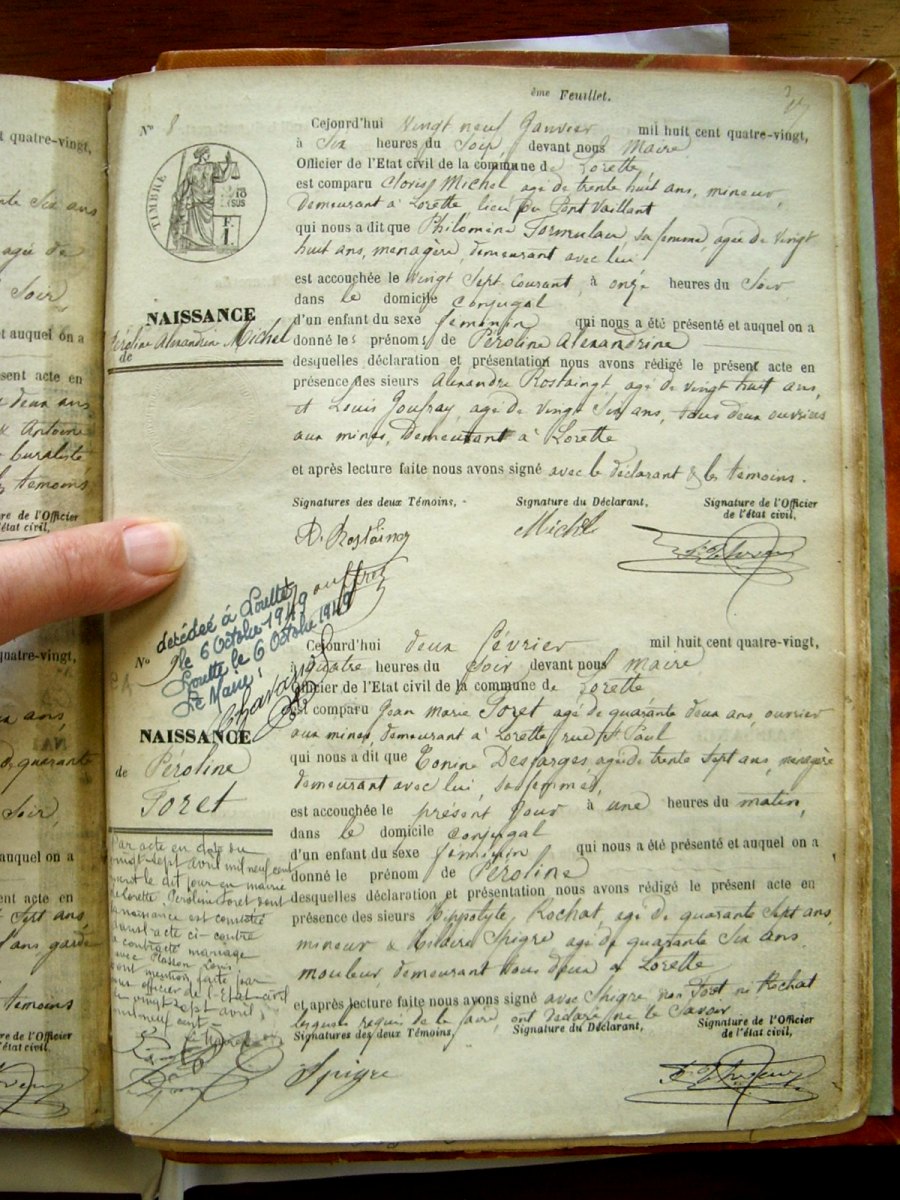 ème Feuillet.
N° 8
Cejourd'hui vingt neuf Janvier mil huit cent quatre-vingt,
à Six heures du Soir, devant nous Maire
Officier de l'Etat civil de la commune de Lorette
est comparu Clovis Michel agé de trente huit ans, mineur,
demeurant à Lorette lieu du Pont Vaillant
qui nous a dit que Philomène sa femme, agée de vingt
huit ans, menagère, demeurant avec lui
est accouchée le vingt Sept Courant, à onze heures du Soir
dans le domicile Conjugal
d'un enfant du sexe féminin qui nous a été présenté et auquel on a
donné les prénoms de Péroline Alexandrine
desquelles déclaration et présentation nous avons rédigé le présent acte en
présence des sieurs Alexandre Rostaingt, agé de vingt huit ans,
et Louis Joufray, agé de vingt Six ans, tous deux ouvriers
aux mines, Demeurant à Lorette
et après lecture faite nous avons signé avec le déclarant & les témoins.
Signatures des deux Témoins, Signature du Déclarant, Signature de l'Officier
de l'état civil,
TIMBRE
NAISSANCE
Péroline Alexandrine Michel
de
A. Rostaing
Michel
Jouffrey
décédée à Lorette
le 6 Octobre 1949
Lorette le 6 Octobre 1949
Le Maire :
N°
Cejourd'hui deux février mil huit cent quatre-vingt,
à quatre heures du Soir devant nous Maire
Officier de l'Etat civil de la commune de Lorette
est comparu Jean Marie Foret agé de quarante deux ans, ouvrier
aux mines, demeurant à Lorette, rue St Paul
qui nous a dit que Tonine Desfarges agée de trente Sept ans, menagère
demeurant avec lui, sa femme,
est accouchée le présent Jour à une heures du matin,
dans le domicile Conjugal
d'un enfant du sexe féminin qui nous a été présenté et auquel on a
donné le prénom de Péroline
desquelles déclaration et présentation nous avons rédigé le présent acte en
présence des sieurs Hippolyte Rochat, agé de quarante Sept ans
mineur & Hilaire Spigre agé de quarante Six ans
mouleur, demeurant tous deux à Lorette
et après lecture faite nous avons signé avec Spigre non Foret ni Rochat
lesquels requis de le faire, ont déclaré ne le Savoir
Signatures des deux Témoins, Signature du Déclarant, Signature de l'Officier
de l'état civil,
NAISSANCE
de Péroline
Foret
Par acte en date du
vingt-sept avril mil neuf cent
le dit jour en mairie
de Lorette, Péroline Foret dont
la naissance est constatée
dans l'acte ci-contre
a contracté mariage
avec Plasson Louis
dont mention faite par
nous officier de l'Etat-civil
le vingt sept avril
mil neuf cent
Spigre